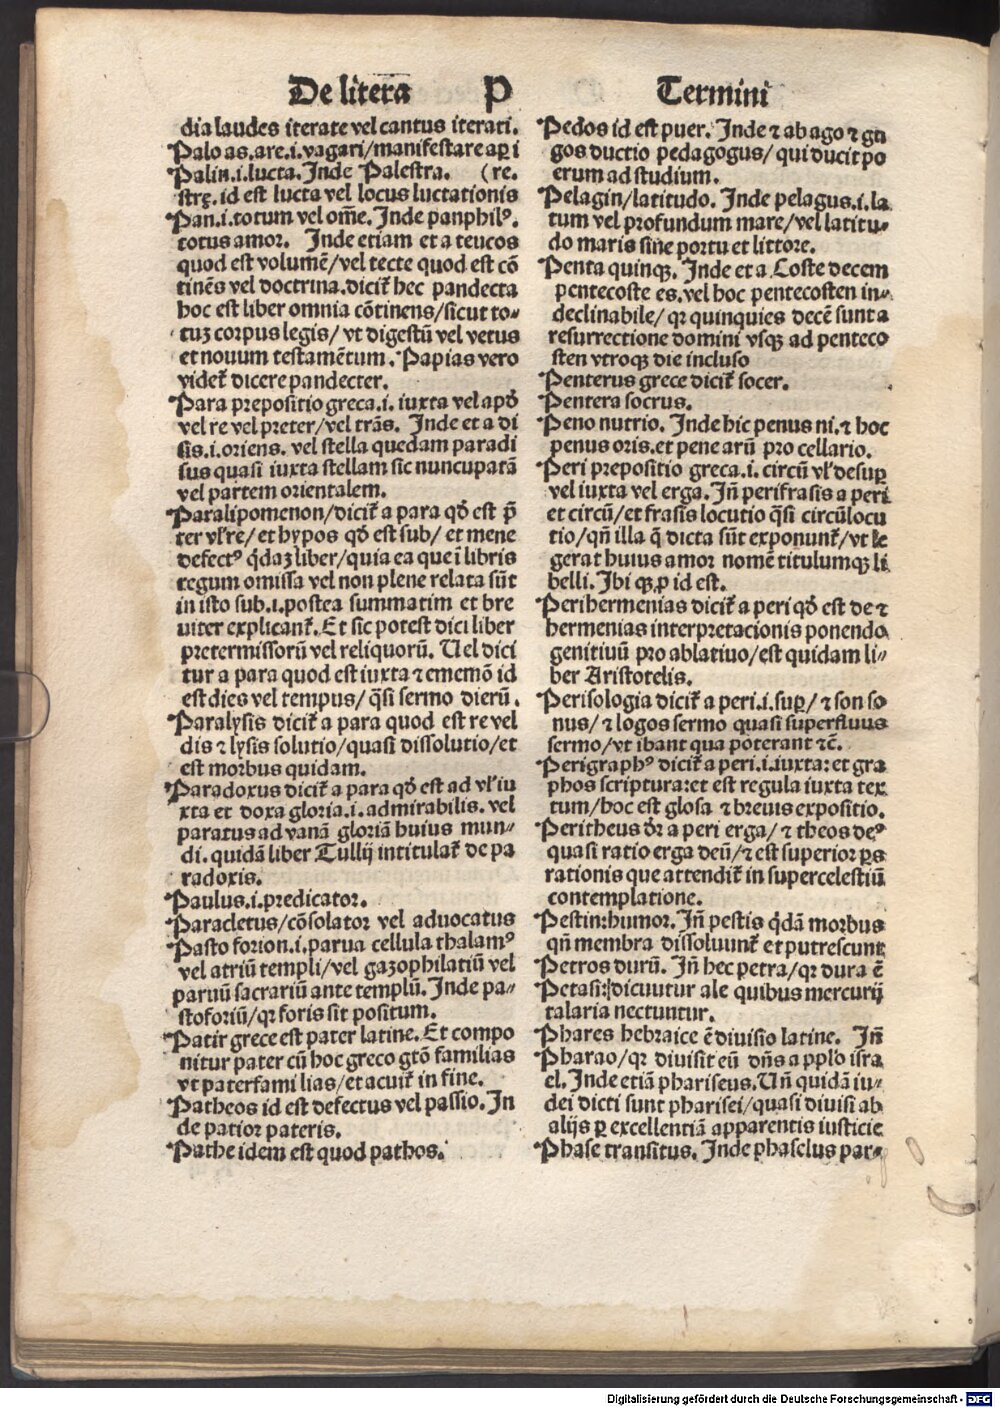 De litera P Termini
dia laudes iterate vel cantus iterati.
Palo as.are.i.vagari/manifestare aꝑi
Palin.i.lucta. Inde Palestra. (re.
strę. id est lucta vel locus luctationis
Pan.i.totum vel om̄e. Inde panphilꝰ.
totus amor. Inde etiam et a teucos
quod est volumē/vel tecte quod est cō
tinēs vel doctrina.dicit̄ hec pandecta
hoc est liber omnia cōtinens/sicut to⸗
tuʒ corpus legis/ vt digestū vel vetus
et nouum testamētum. Papias vero
videt̄ dicere pandecter.
Para prepositio greca.i. iuxta vel apđ
vel re vel preter/vel trās. Inde et a di
sis.i.oriens. vel stella quedam paradi
sus quasi iuxta stellam sic nuncupatā
vel partem orientalem.
Paralipomenon/dicit̄ a para qđ est p̄
ter vl̓ re/ et hypos qđ est sub/ et mene
defectꝰ q̄daʒ liber/quia ea que ī libris
regum omissa vel non plene relata sūt
in isto sub.i.postea summatim et bre
uiter explicant̄. Et sic potest dici liber
pretermissorū vel reliquorū. Uel dici
tur a para quod est iuxta ⁊ ememō id
est dies vel tempus/ q̄si sermo dierū.
Paralysis dicit̄ a para quod est re vel
dis ⁊ lysis solutio/quasi dissolutio/et
est morbus quidam.
Paradoxus dicit̄ a para qđ est ad vl̓ iu
xta et doxa gloria.i.admirabilis. vel
paratus ad vanā gloriā huius mun⸗
di. quidā liber Tullij intitulat̄ de pa
radoxis.
Paulus.i.predicator.
Paracletus/cōsolator vel aduocatus
Pasto forion.i.parua cellula thalamꝰ
vel atriū templi/vel gazophilatiū vel
paruū sacrariū ante templū. Inde pa⸗
stoforiū/qꝛ foris sit positum.
Patir grece est pater latine. Et compo
nitur pater cū hoc greco gtō familias
vt paterfami lias/et acuit̄ in fine.
Patheos id est defectus vel passio. In
de patior pateris.
Pathe idem est quod pathos.
Pedos id est puer. Inde ⁊ ab ago ⁊ go
gos ductio pedagogus/ qui ducit po
erum ad studium.
Pelagin/latitudo. Inde pelagus.i.la
tum vel profundum mare/vel latitu⸗
do maris sine portu et littore.
Penta quinqꝫ. Inde et a Coste decem
pentecoste es.vel hoc pentecosten in⸗
declinabile/ qꝛ quinquies decē sunt a
resurrectione domini vsqꝫ ad penteco
sten vtroqꝫ die incluso
Penterus grece dicit̄ socer.
Pentera socrus.
Peno nutrio. Inde hic penus ni.⁊ hoc
penus oris.et pene arū pro cellario.
Peri prepositio greca.i. circū vl̓ desuꝑ
vel iuxta vel erga. Iñ perifrasis a peri
et circū/et frasis locutio q̄si circūlocu
tio/qñ illa q̄ dicta sūt exponunt̄/vt le
gerat huius amor nomē titulumqꝫ li
belli. Ibi qꝫ.ꝓ id est.
Perihermenias dicit̄ a peri qđ est de ⁊
hermenias interpretacionis ponendo
genitiuū pro ablatiuo/est quidam li⸗
ber Aristotelis.
Perisologia dicit̄ a peri.i.suꝑ/ ⁊ son so
nus/ ⁊ logos sermo quasi superfluus
sermo/vt ibant qua poterant ⁊c̄.
Perigraphꝰ dicit̄ a peri.i.iuxta: et gra
phos scriptura: et est regula iuxta tex
tum/hoc est glosa ⁊ breuis expositio.
Peritheus dr̄ a peri erga/ ⁊ theos deꝰ
quasi ratio erga deū/⁊ est superior ꝑs
rationis que attendit̄ in supercelestiū
contemplatione.
Pestin:humor. Iñ pestis q̄dā morbus
qñ membra dissoluunt̄ et putrescunt
Petros durū. Iñ hec petra/qꝛ dura ē
Petasi: dicuutur ale quibus mercurij
talaria nectuntur.
Phares hebraice ē diuisio latine. Iñ
Pharao/qꝛ diuisit eū dñs a pplo isra
el. Inde etiā phariseus. Uñ quidā iu⸗
dei dicti sunt pharisei/quasi diuisi ab
alijs ꝑ excellentiā apparentis iusticie
Phase transitus. Inde phaselus par⸗
Digitalisierung gefördert durch die Deutsche Forschungsgemeinschaft - DFG